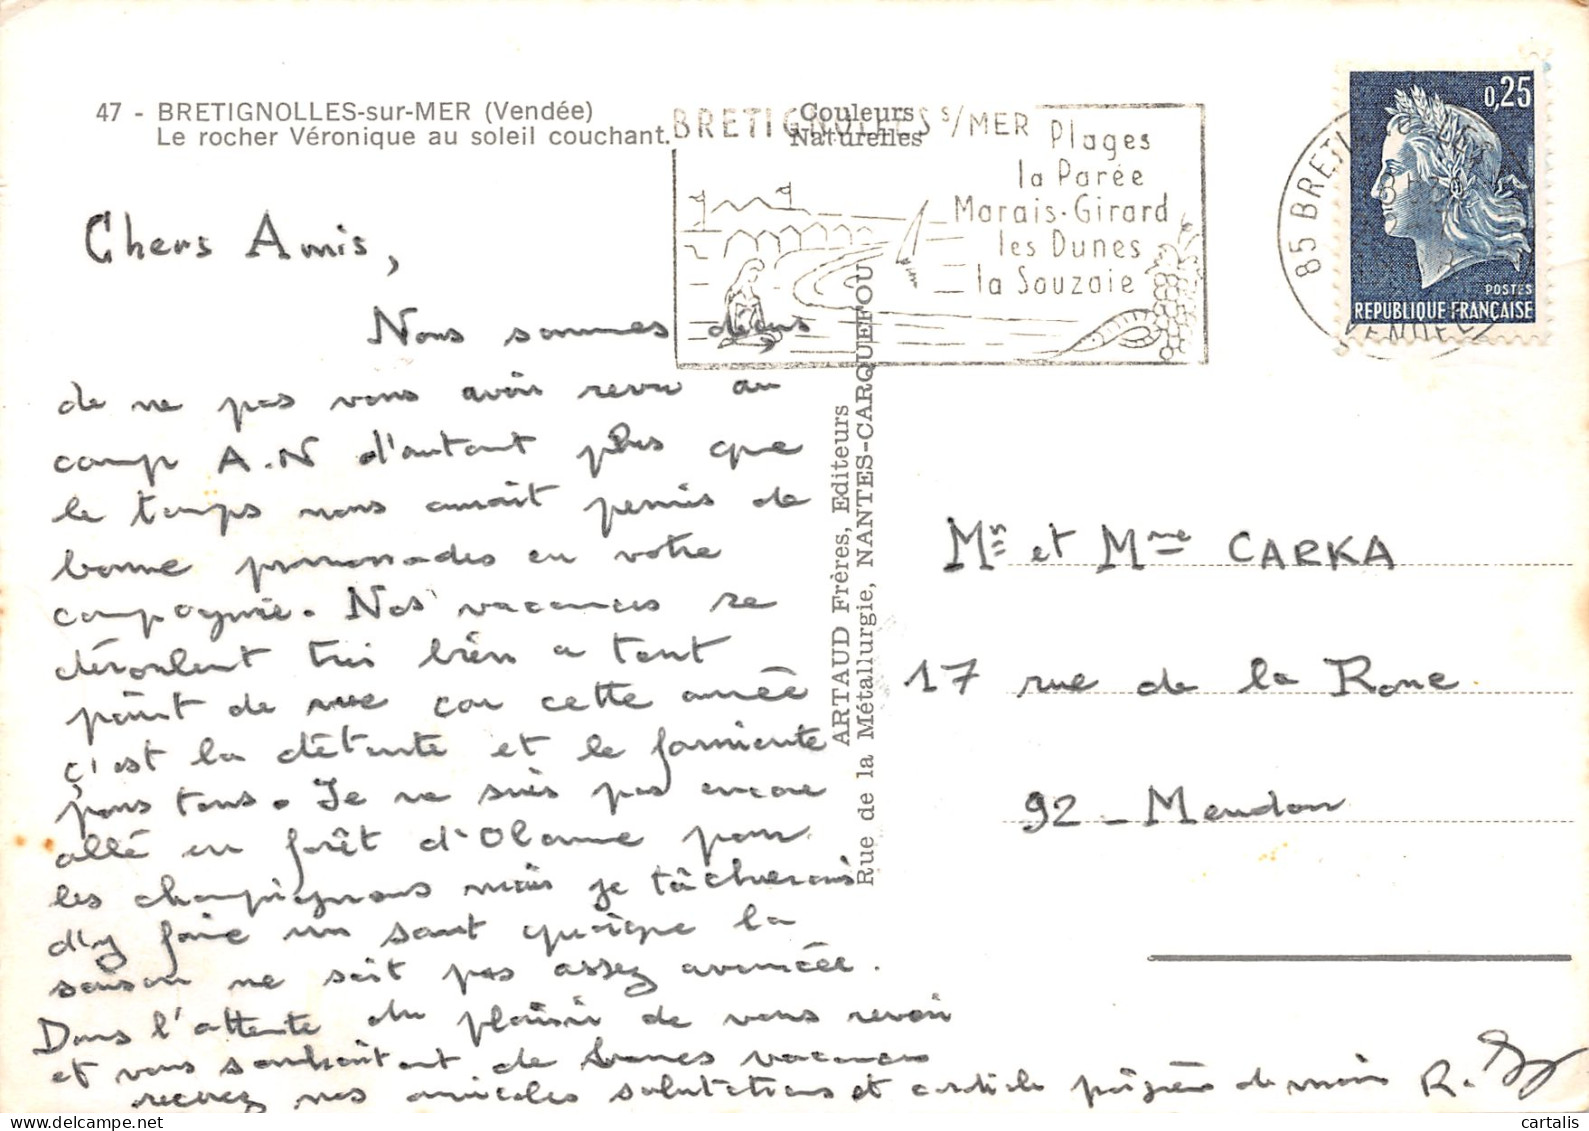 47 - BRETIGNOLLES-sur-MER (Vendée)
Le rocher Véronique au soleil couchant.
Couleurs
Naturelles
BRETIGNOLLES S/MER
Plages
la Parée
Marais-Girard
les Dunes
la Sauzaie
85 BRETIGNOLLES
VENDEE
0,25
POSTES
REPUBLIQUE FRANÇAISE
Chers Amis,
Nous sommes déçus
de ne pas vous avoir revu au
camp A.N d'autant plus que
le temps nous aurait permis de
bonne promenades en votre
compagnie. Nos vacances se
déroulent très bien a tout
point de vue car cette année
c'est la détente et le farniente
pour tous. Je ne suis pas encore
allé en forêt d'Olonne pour
les champignons mais je tâcherais
d'y faire un saut quoique la
saison ne soit pas assez avancée.
Dans l'attente du plaisir de vous revoir
et vous souhaitant de bonnes vacances
recevez nos amicales salutations et cordiale poignée de main R.
ARTAUD Frères, Editeurs
Rue de la Métallurgie, NANTES-CARQUEFOU
Mrs et Mme CARKA
17 rue de la Rone
92 - Meudon
cartalis